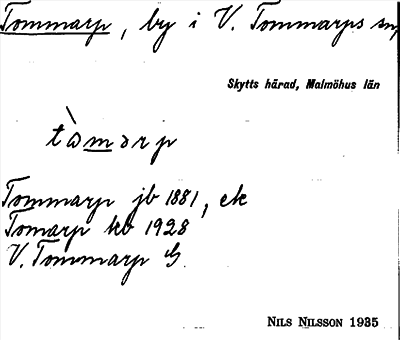 Tommarp, by i V. Tommarps sn,
Skytts härad, Malmöhus län
tòmarp
Tommarp jb 1881, ek
Tomarp kb 1928
V. Tommarp G.
NILS NILSSON 1935